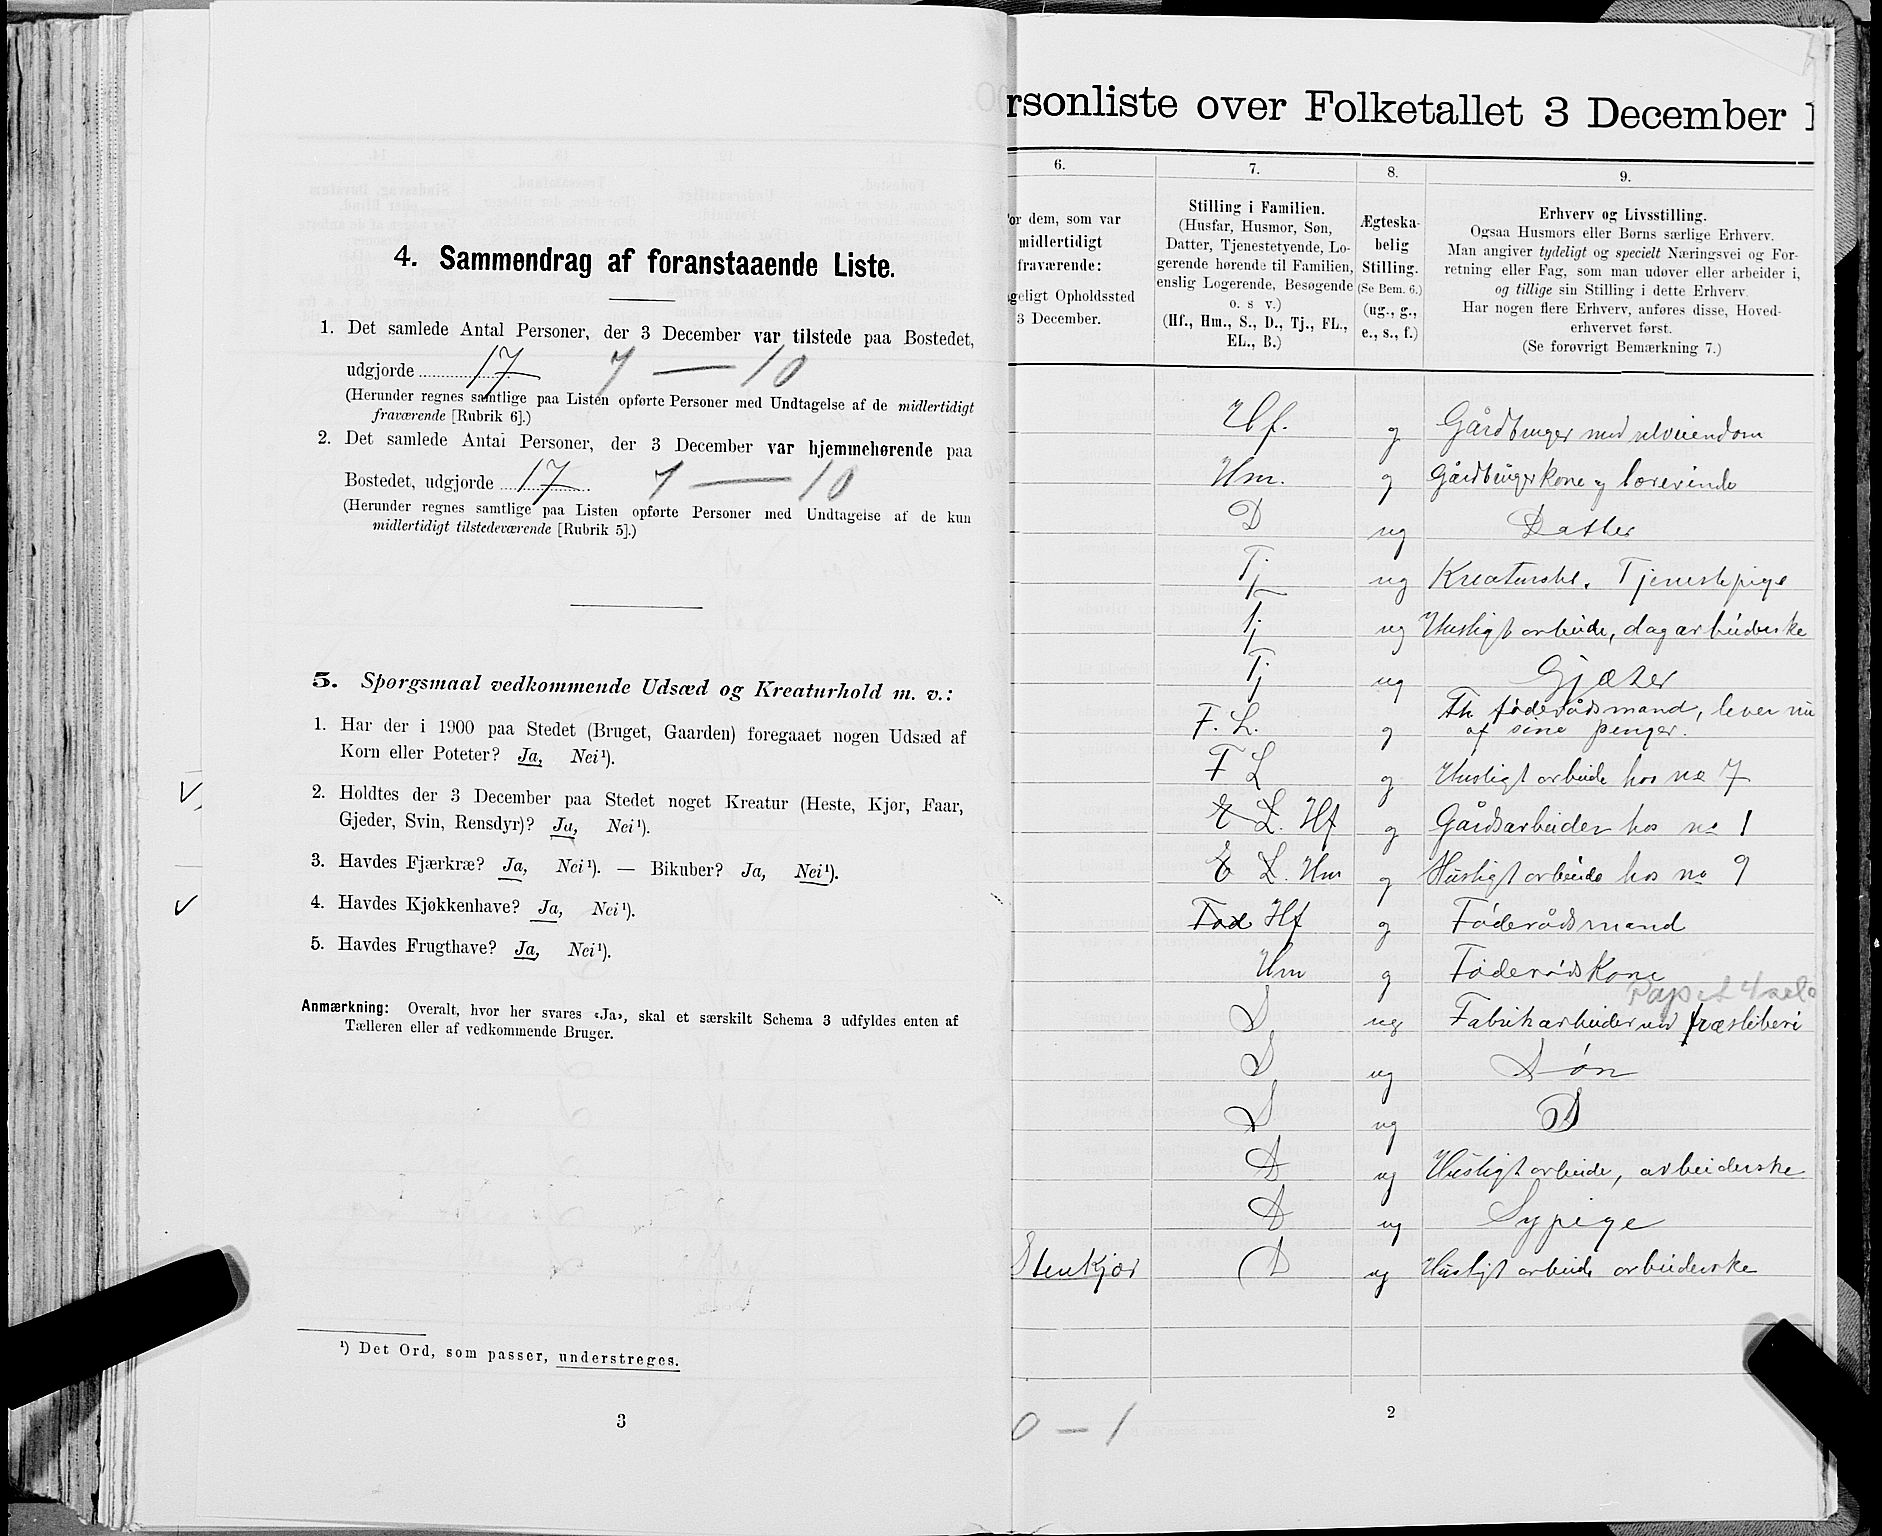 4. Sammendrag af foranstaaende Liste.
1. Det samlede Antal Personer, der 3 December var tilstede paa Bostedet,
udgjorde 17 7 — 10
(Herunder regnes samtlige paa Listen opførte Personer med Undtagelse af de midlertidigt
fraværende [Rubrik 6].)
2. Det samlede Antal Personer, der 3 December var hjemmehørende paa
Bostedet, udgjorde 17 7 — 10
(Herunder regnes samtlige paa Listen opførte Personer med Undtagelse af de kun
midlertidigt tilstedeværende [Rubrik 5].)
5. Spørgsmaal vedkommende Udsæd og Kreaturhold m. v.:
1. Har der i 1900 paa Stedet (Bruget, Gaarden) foregaaet nogen Udsæd af
Korn eller Poteter? Ja, Nei¹).
2. Holdtes der 3 December paa Stedet noget Kreatur (Heste, Kjør, Faar,
Gjeder, Svin, Rensdyr)? Ja, Nei¹).
3. Havdes Fjærkræ? Ja, Nei¹). — Bikuber? Ja, Nei¹).
4. Havdes Kjøkkenhave? Ja, Nei¹).
5. Havdes Frugthave? Ja, Nei¹).
Anmærkning: Overalt, hvor her svares «Ja», skal et særskilt Schema 3 udfyldes enten af
Tælleren eller af vedkommende Bruger.
¹) Det Ord, som passer, understreges.
3
rsonliste over Folketallet 3 December 1
6.
or dem, som var
midlertidigt
fraværende:
geligt Opholdssted
3 December.
7.
Stilling i Familien.
(Husfar, Husmor, Søn,
Datter, Tjenestetyende, Lo-
gerende hørende til Familien,
enslig Logerende, Besøgende
o. s v.)
(Hf., Hm., S., D., Tj., FL.,
EL., B.)
8.
Ægteska-
belig
Stilling.
(Se Bem. 6.)
(ug., g.,
e., s., f.)
9.
Erhverv og Livsstilling.
Ogsaa Husmors eller Børns særlige Erhverv.
Man angiver tydeligt og specielt Næringsvei og For-
retning eller Fag, som man udøver eller arbeider i,
og tillige sin Stilling i dette Erhverv.
Har nogen flere Erhverv, anføres disse, Hoved-
erhvervet først.
(Se forøvrigt Bemærkning 7.)
Hf. g Gårdbruger med selveiendom
Hm. g Gårdbrugerkone og lærerinde
D ug Datter
Tj ug Kreaturstel. Tjenestepige
Tj ug Husligt arbeide, dagarbeiderske
Tj ug Gjæter
F. L. g Fh. føderådsmand, lever nu
af sine penger.
F L g Husligt arbeide hos no 7
E L. Hf g Gårdsarbeider hos no 1
E L. Hm g Husligt arbeide hos no 9
Fød Hf g Føderådsmand
Hm g Føderådskone
S ug Fabrikarbeider ved træsliberi
S ug Søn
S ug S
D ug Husligt arbeide, arbeiderske
D ug Sypige
Stenkjær D ug Husligt arbeide arbeiderske
0 — 1
2